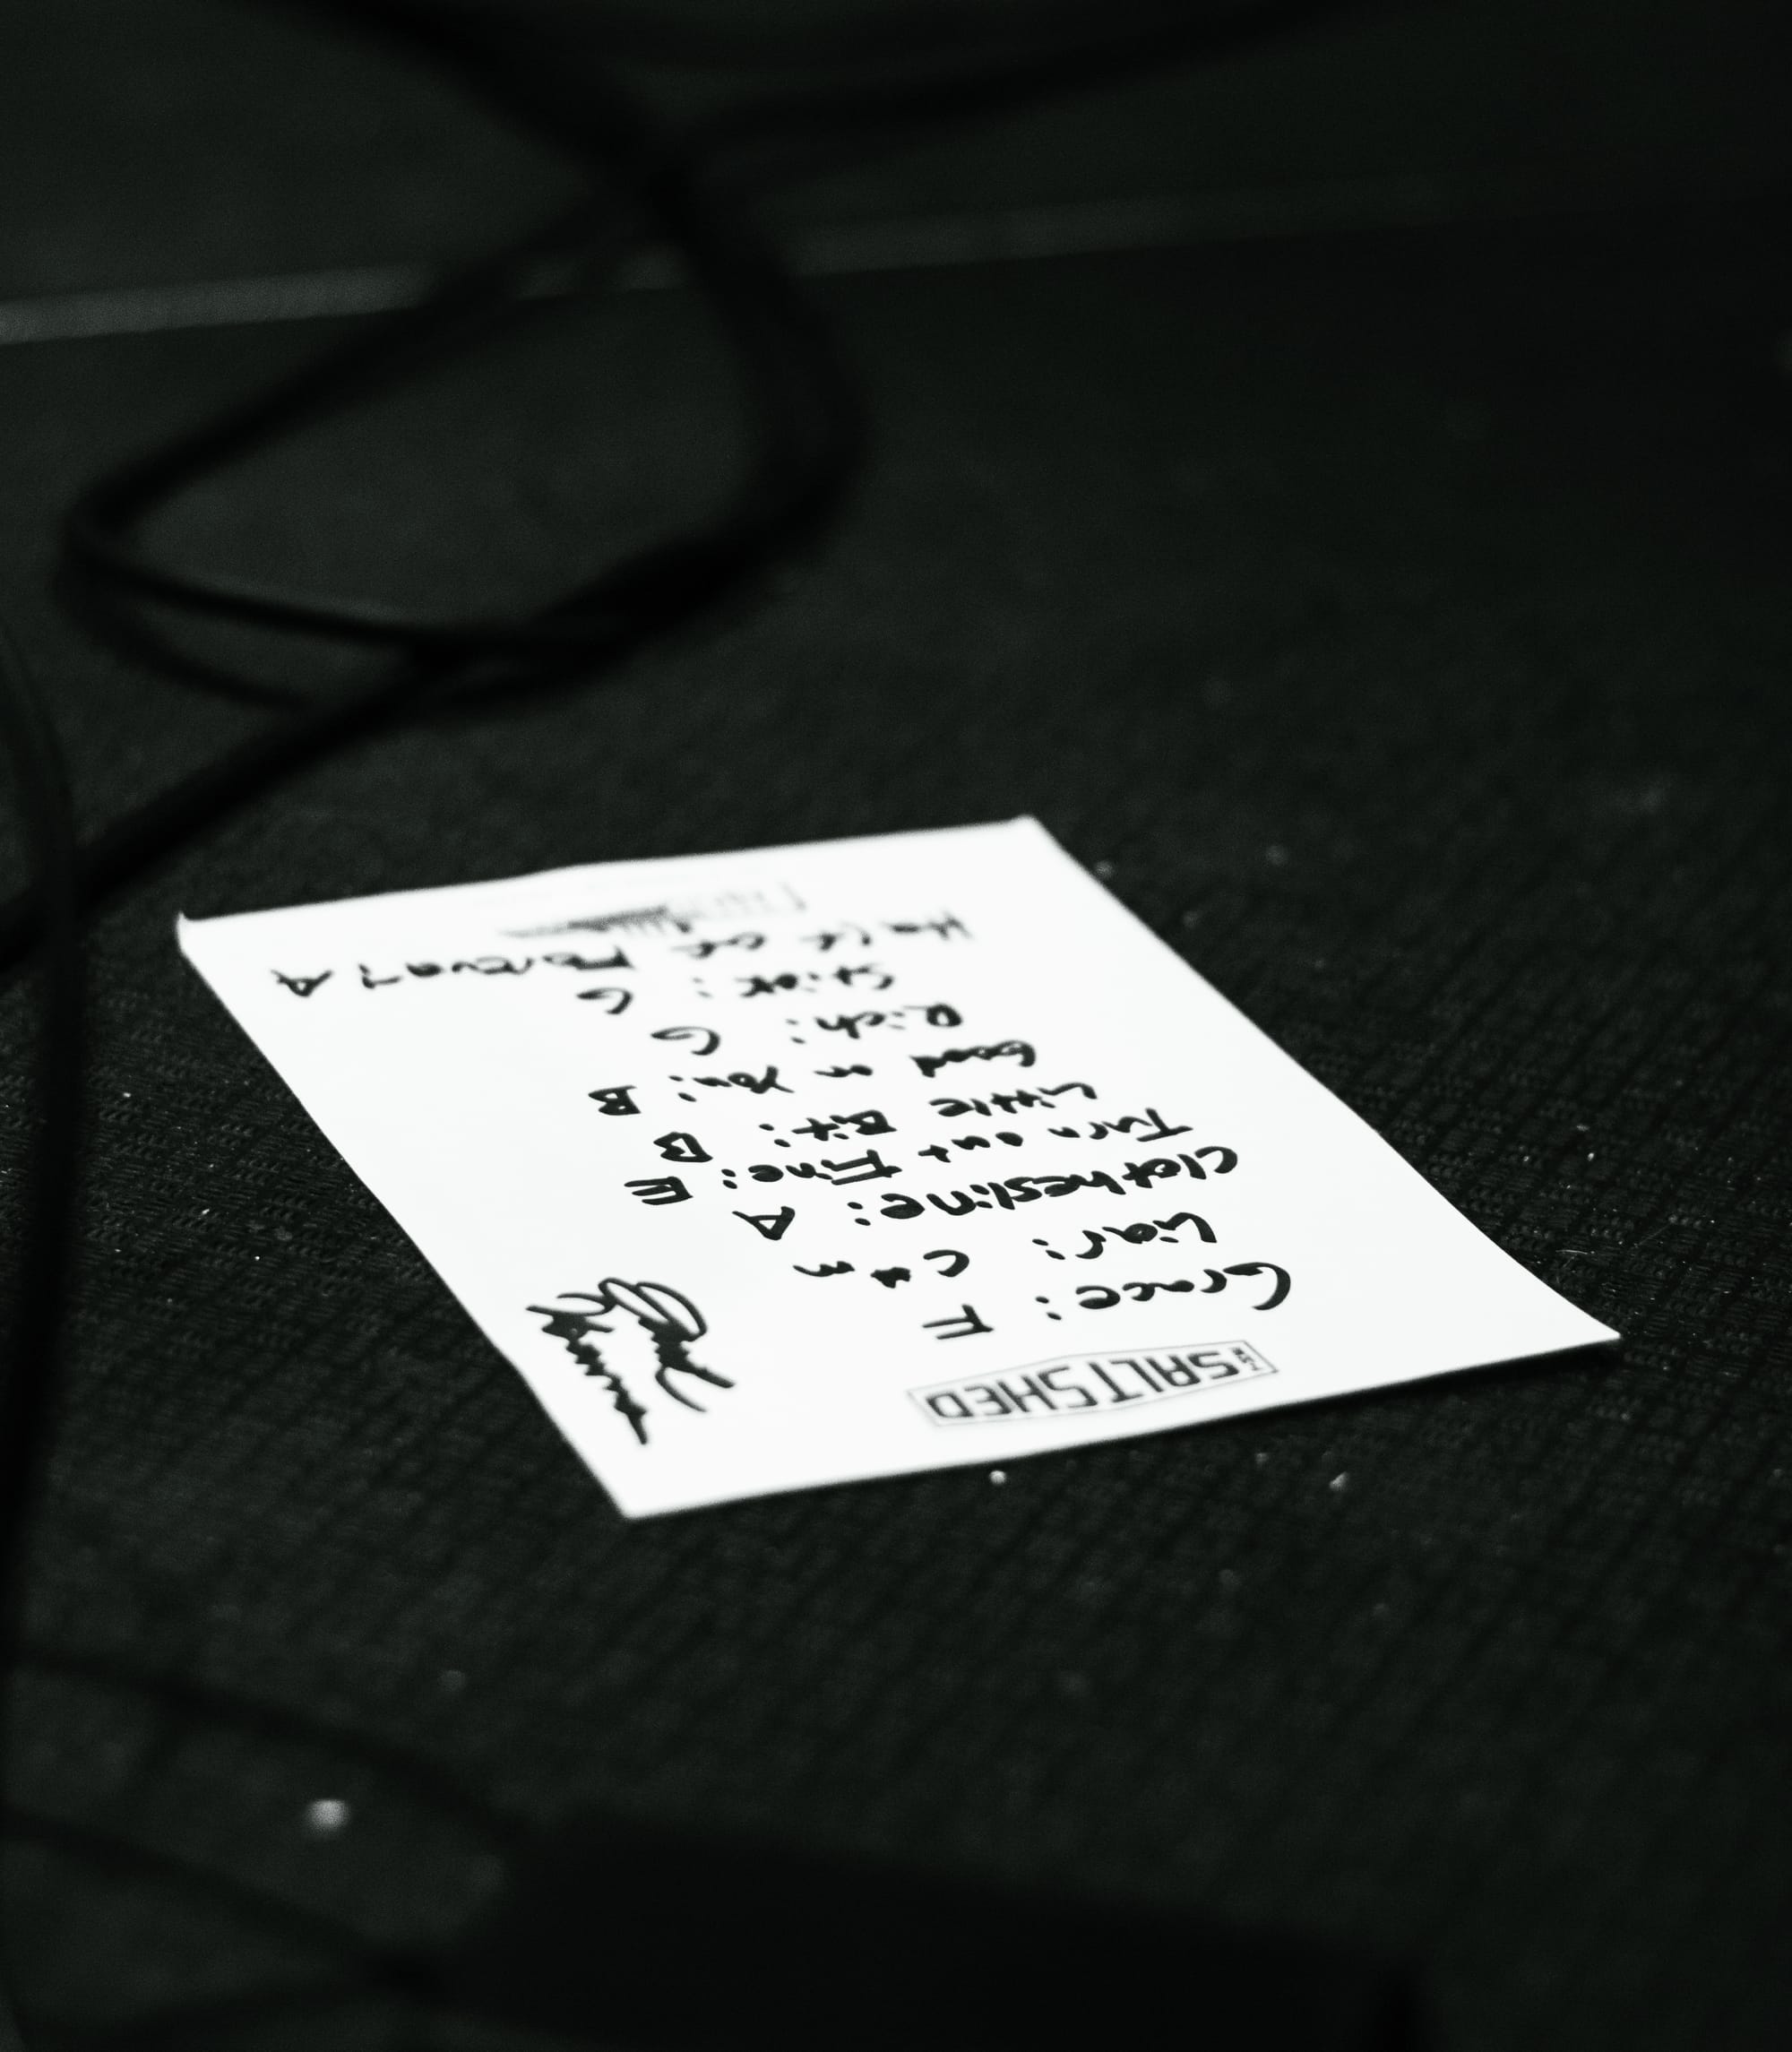 THE SALT SHED
Grace: F
Liar: C#m
Clothesline: A
Turn out Fine: E
Little Bit: B
Good on You: B
Rich: G
Stick: G
Half of Foreva: A